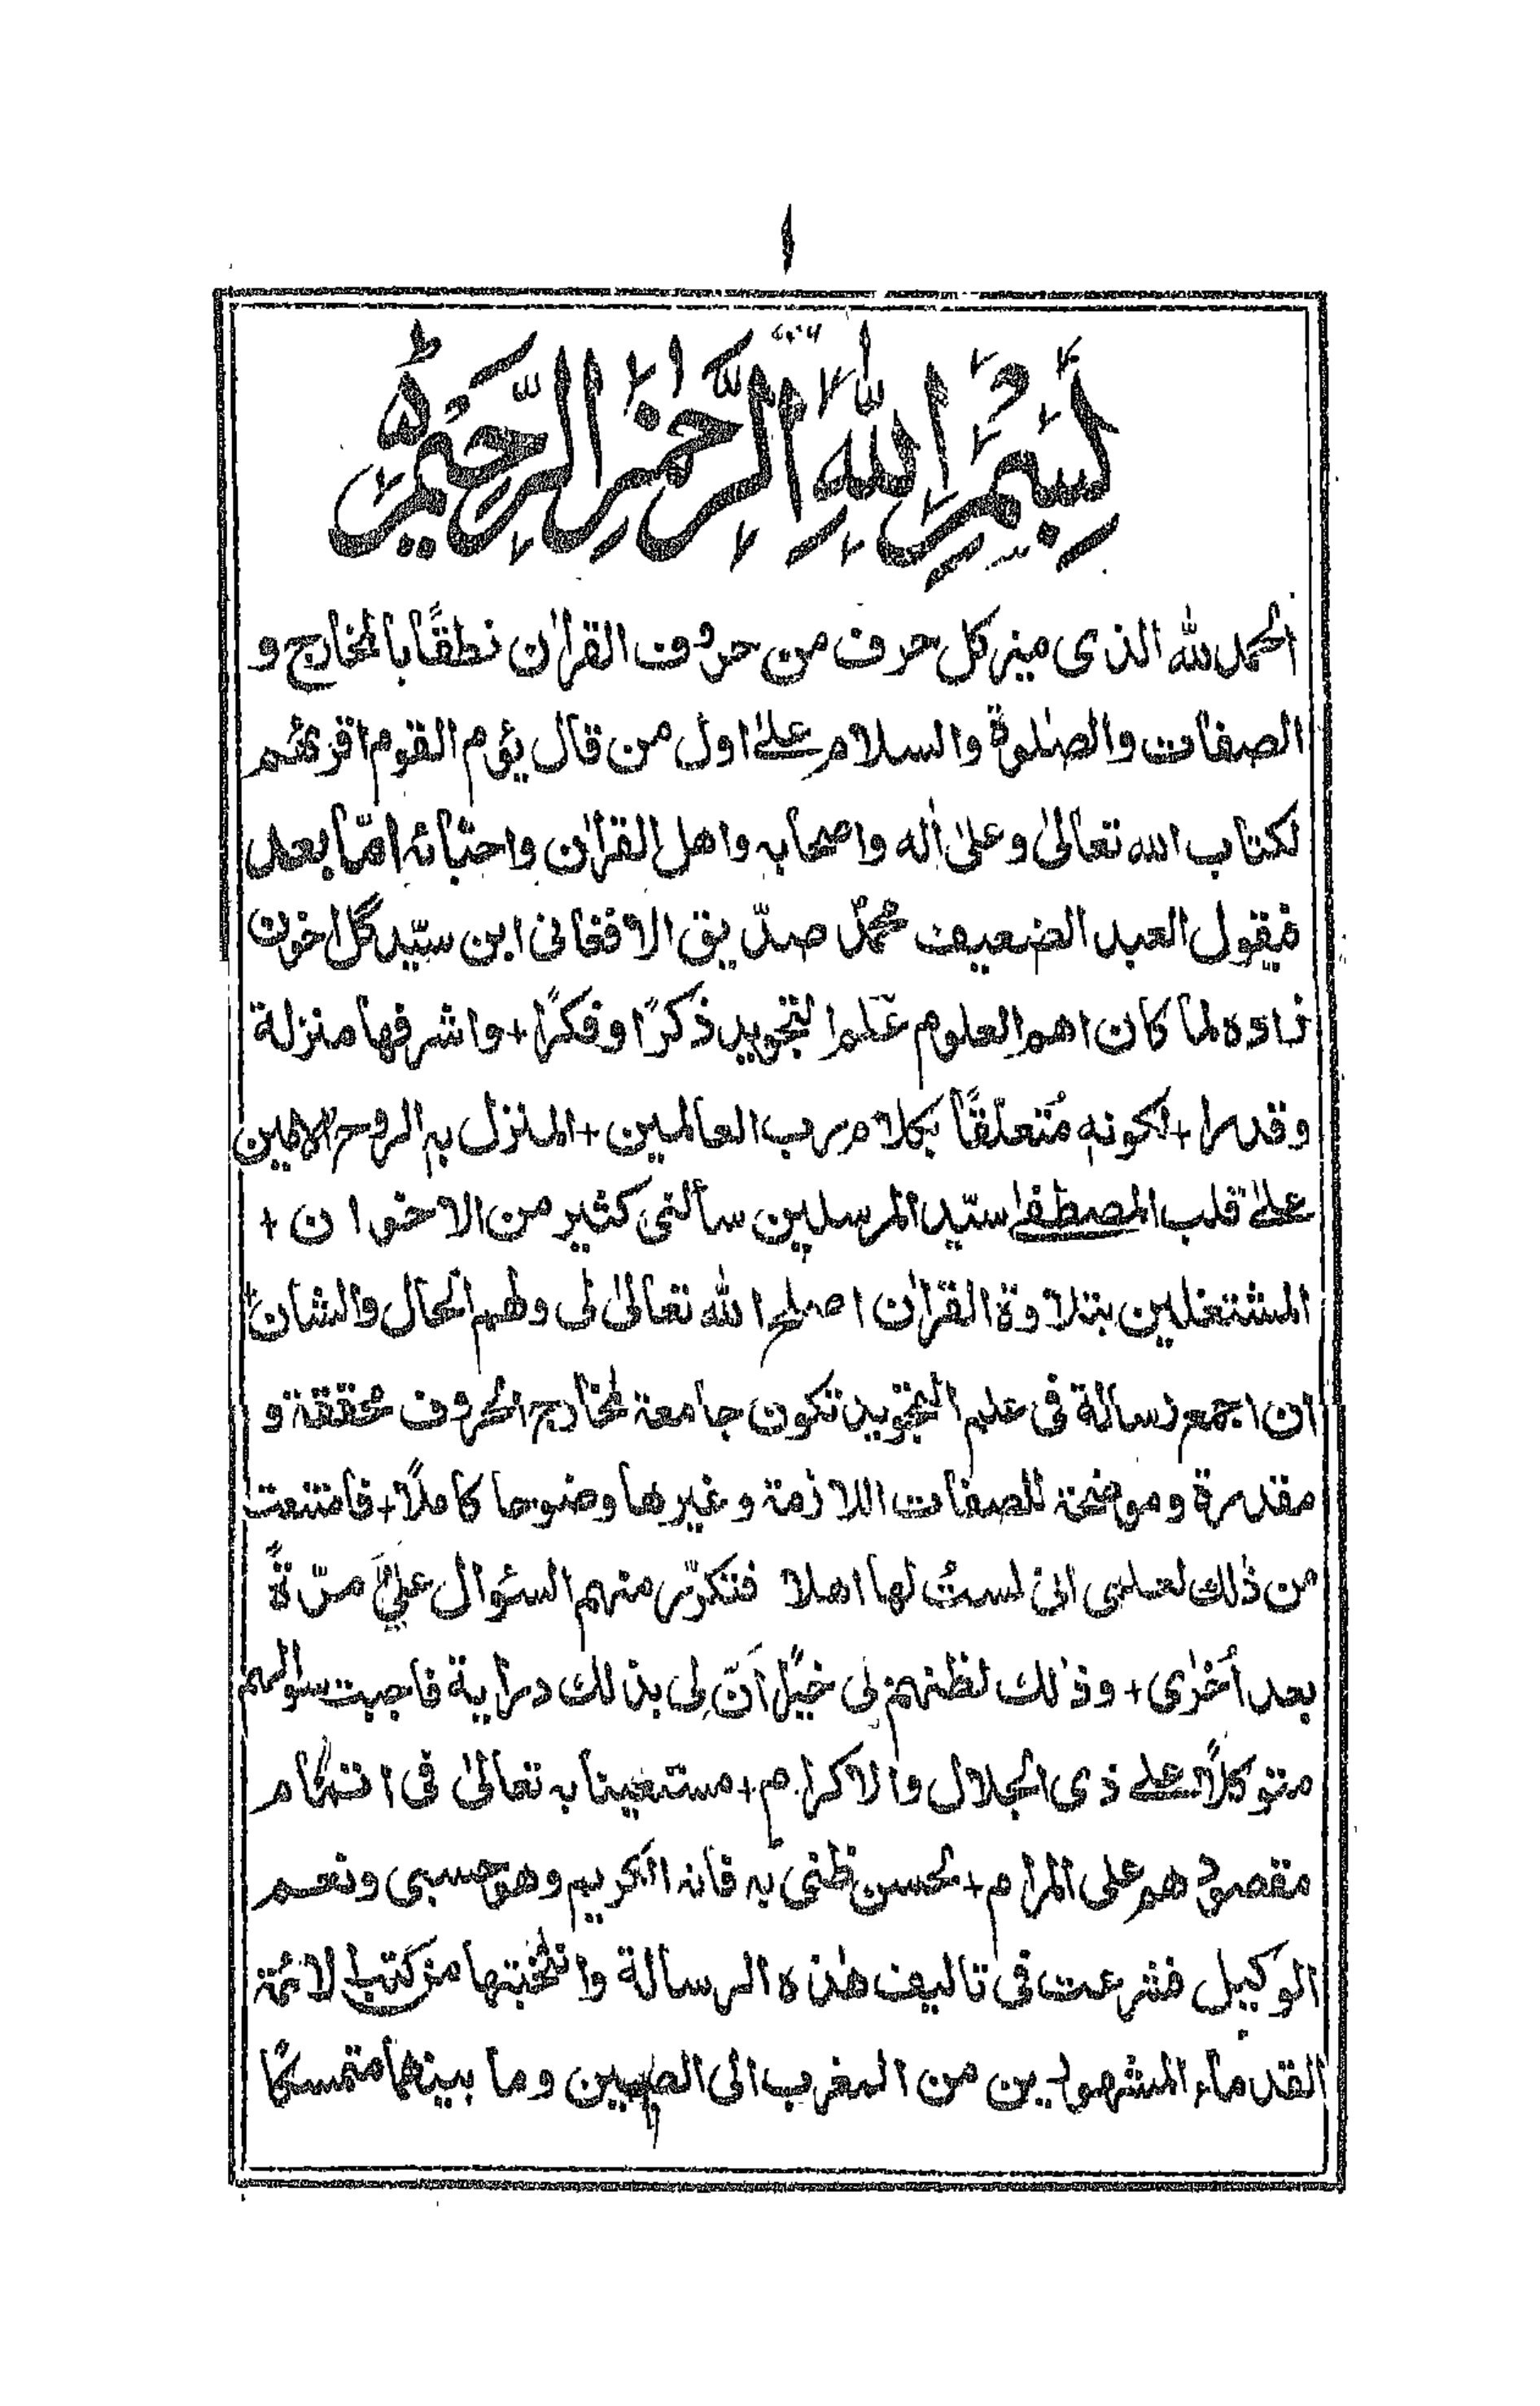 ١
بِسْمِ اللهِ الرَّحْمٰنِ الرَّحِيْمِ ط
الحمد لله الذى ميز كل حرف من حروف القراٰن نطقًا بالمخارج و
الصفات والصلٰوة والسلام علىٰ اول من قال يؤم القوم اقرئهم
لكتاب الله تعالىٰ وعلىٰ اٰله واصحابه واهل القراٰن واحبّائه امّا بعد
فيقول العبد الضعيف محمّد صدّيق الافغانى ابن سيّد گل اخون
زاده لما كان اهم العلوم علم التجويد ذكرًا وفكرًا + واشرفها منزلة
وقدرا + لكونه مُتعلّقًا بكلام رب العالمين + المنزل به الروح الامين
علىٰ قلب المصطفىٰ سيّد المرسلين سألنى كثير من الاخوان +
المشتغلين بتلاوة القراٰن اصلح الله تعالىٰ لى ولهم الحال والشان +
ان اجمع رسالة فى علم التجويد تكون جامعة لمخارج الحروف محققة و
مقدرة وموضحة للصفات اللازمة وغيرها وضوحا كاملًا + فامتنعت
من ذٰلك لعلمى انى لستُ لها اهلا فتكرّر منهم السئوال علىَّ مرّةً
بعد اُخرٰى + وذٰلك لظنهم لى خيرًا اَنّ لى بذٰلك دراية فاجبت سئوالهم
متوكلًا على ذى الجلال والاكرام + مستعينا به تعالىٰ فى اتمام
مقصودهم على المرام + لحسن ظنى به فانه الكريم وهو حسبى ونعم
الوكيل فشرعت فى تاليف هٰذه الرسالة وانتخبتها من كتب الائمة
القدماء المشهورين من المغرب الى الصين وما بينهما متمسكًا